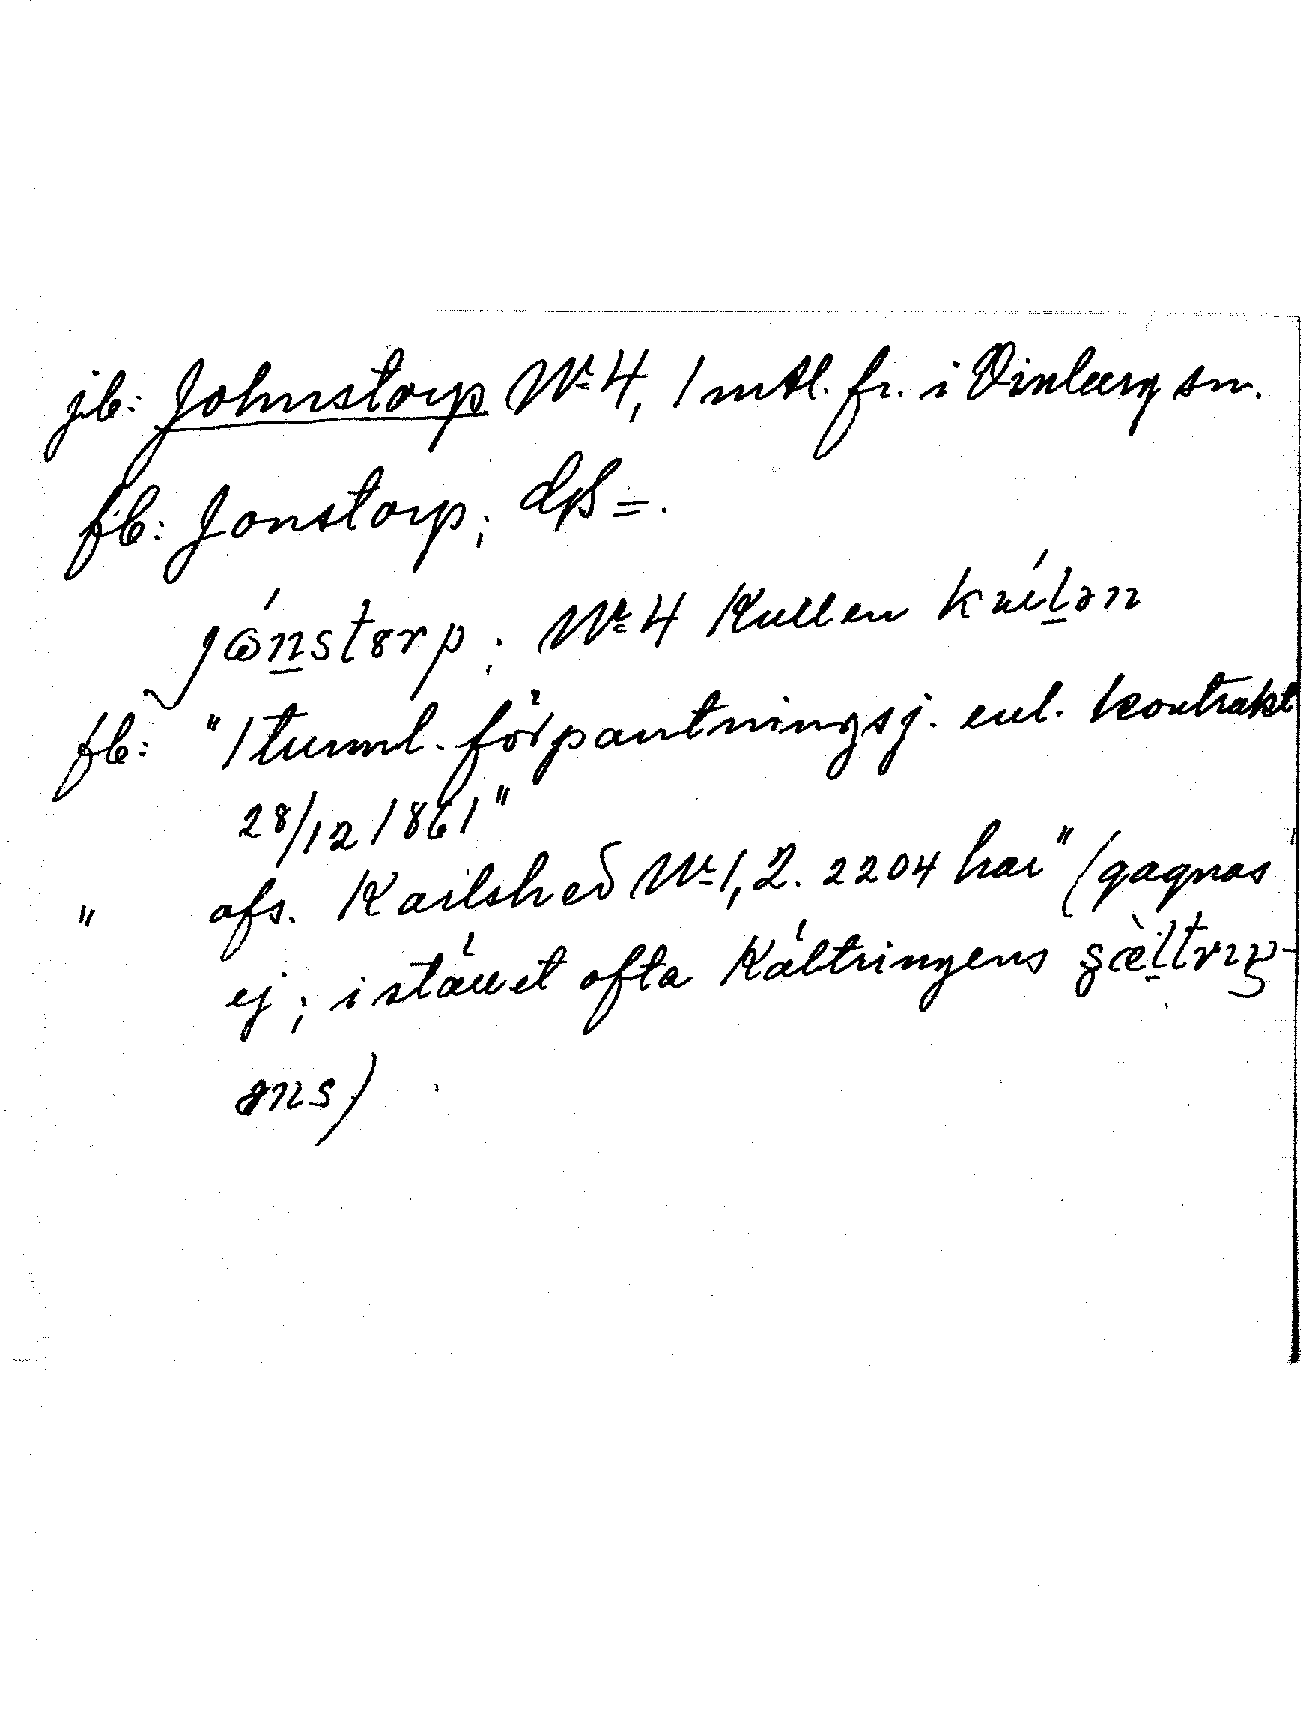 jb: Johnstorp No 4, 1 mtl. fr. i Vinberg sn.
fb: Jonstorp; d:o =.
jónstorp; No 4 Kullen kúlən
fb: "1 tunnl. förpantningsj. enl. kontrakt
28/12 1861"
" afs. Karlshed No 1, 2. 2204 har" (gagnas
ej; i stället ofta Kältringens çæ̀ltrɪŋ-
əns)